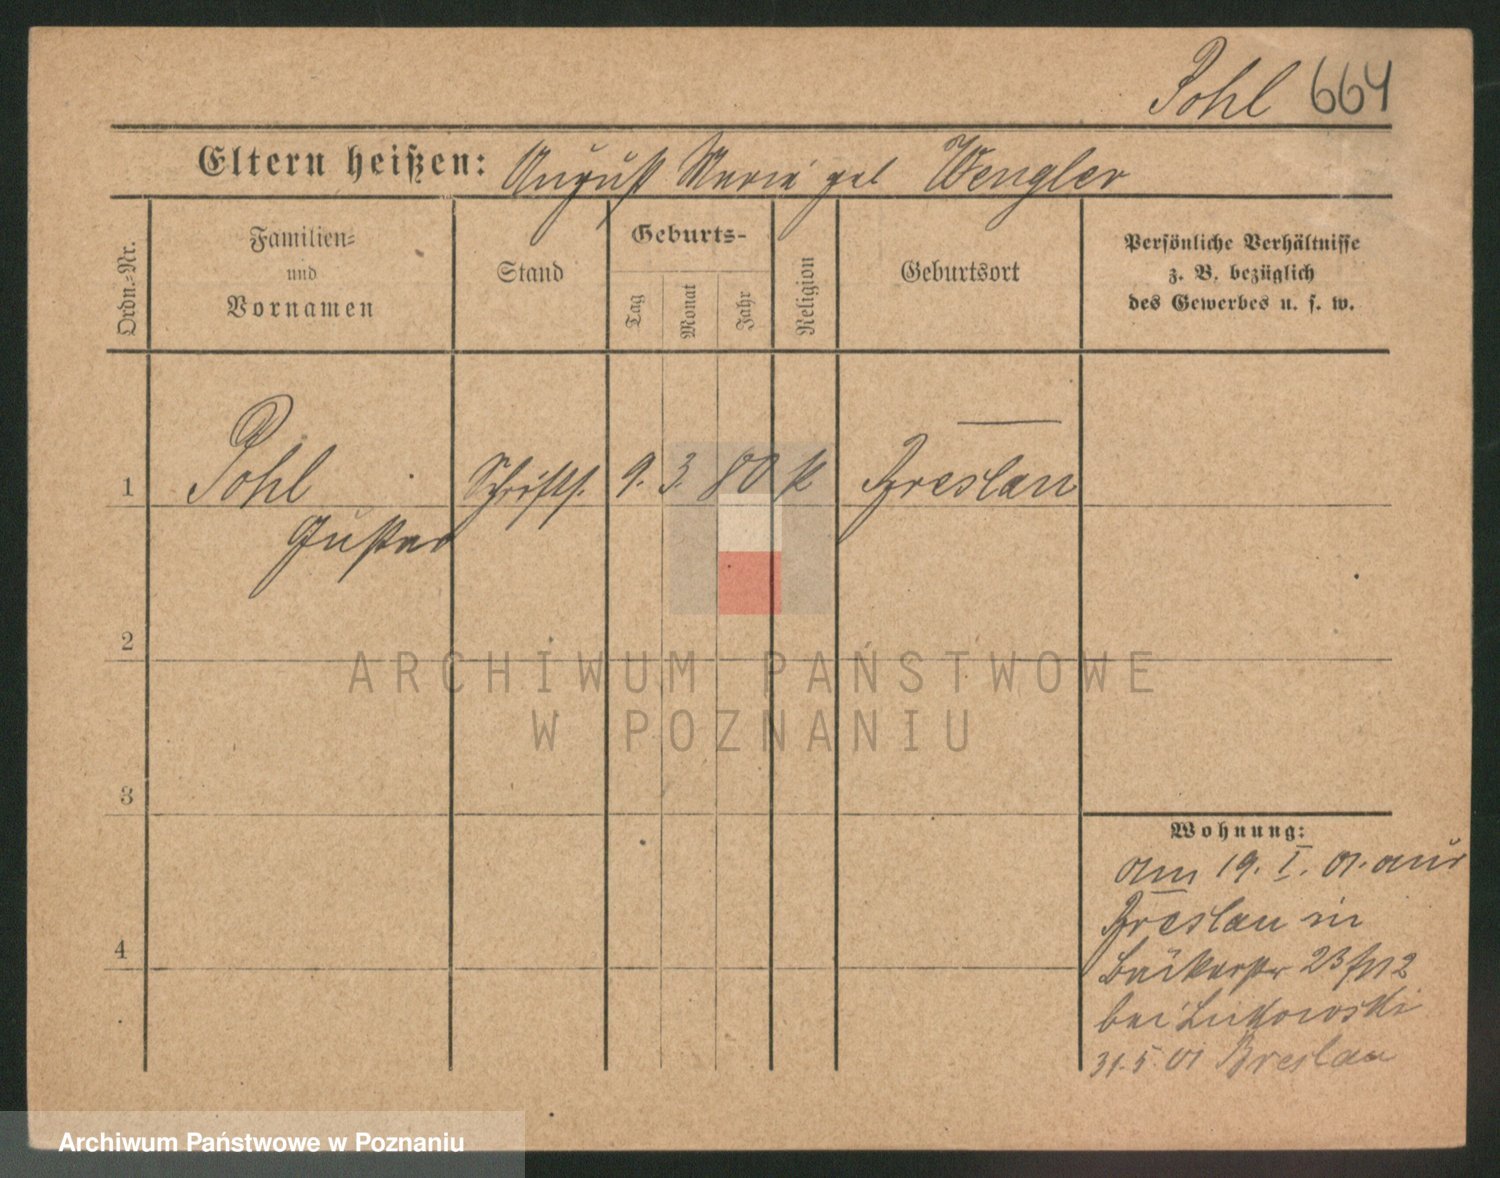 Pohl 664
Eltern heißen: August Maria geb Wengler
Ordn.-Nr.
Familien-
und
Vornamen
Stand
Geburts-
Tag
Monat
Jahr
Religion
Geburtsort
Persönliche Verhältnisse
z. B. bezüglich
des Gewerbes u. s. w.
1 Pohl Schrifts. 9. 3. 80 k Breslau
Gustav
2
3
4
Wohnung:
Am 19. I. 01. aus
Breslau in
Bäckerstr 23
bei
31.5.01 Breslau
ARCHIWUM PAŃSTWOWE
W POZNANIU
Archiwum Państwowe w Poznaniu